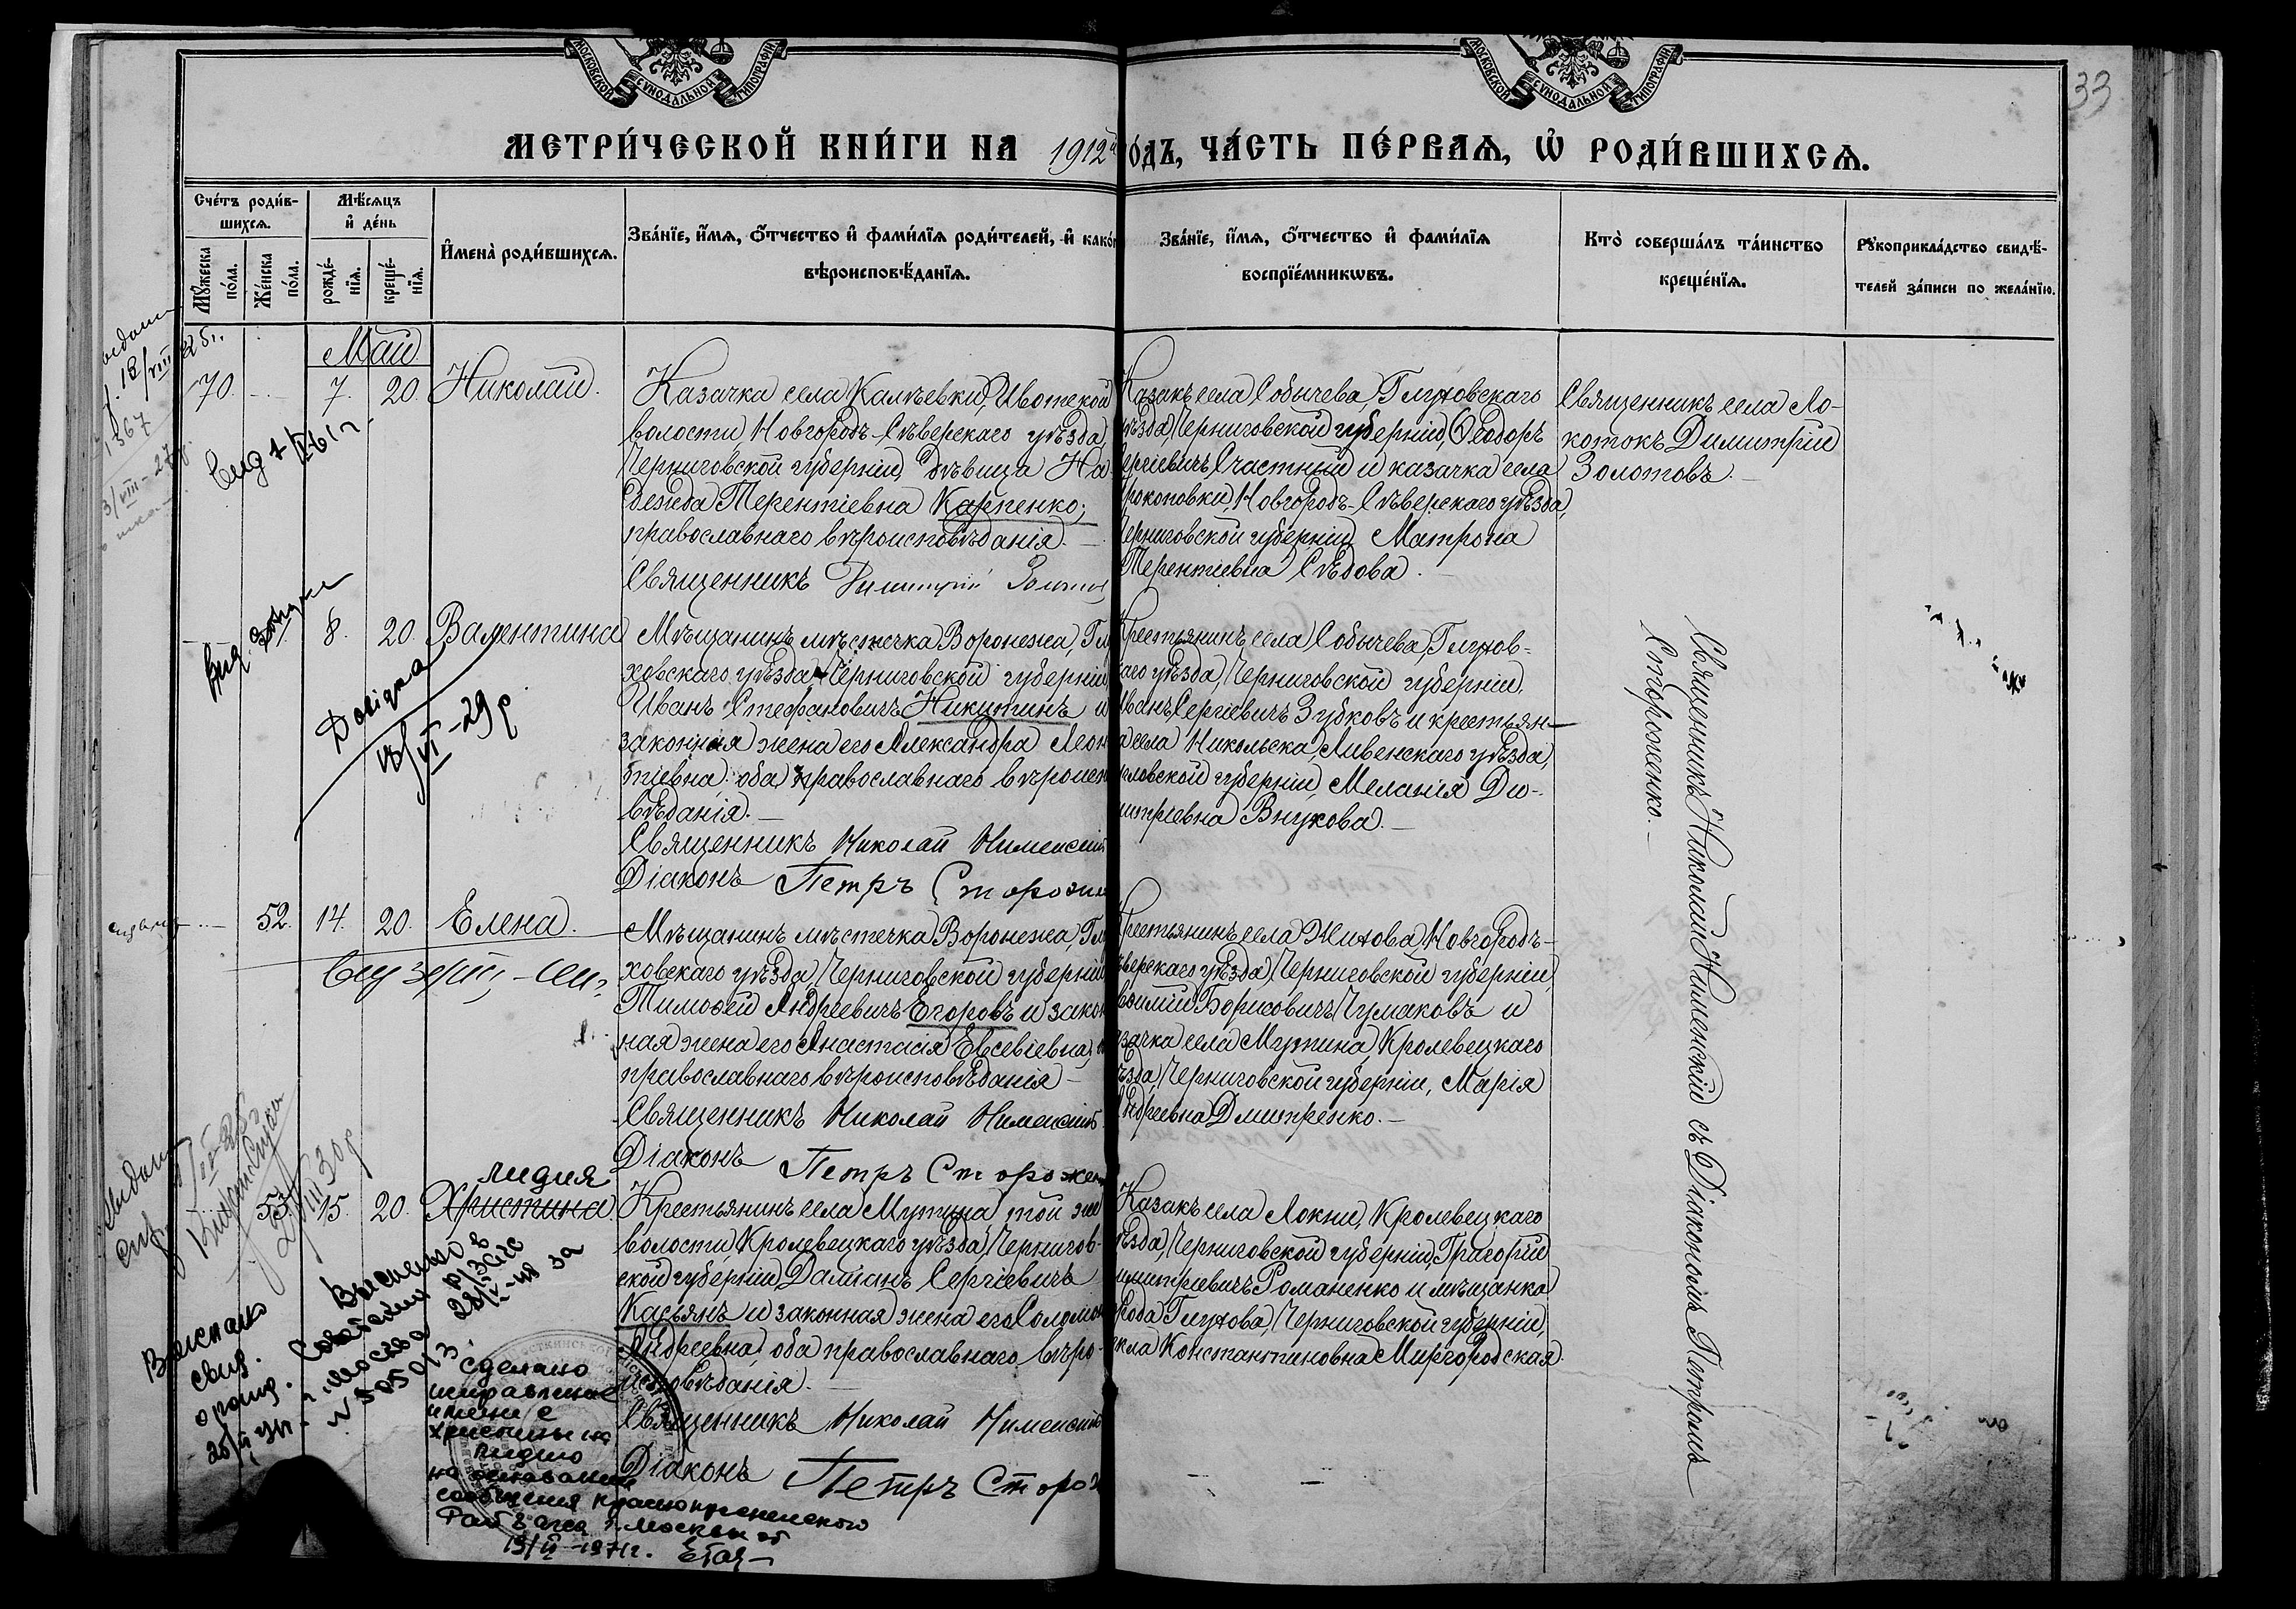 МОСКОВСКОЙ СУНОДАЛЬНОЙ ТИПОГРАФІИ
МОСКОВСКОЙ СУНОДАЛЬНОЙ ТИПОГРАФІИ
33
МЕТРИ́ЧЕСКОЙ КНИ́ГИ НА 1912й
О́ДЪ, ЧА́СТЬ ПЕ́РВАѦ, Ѡ҆ РОДИ́ВШИХСѦ.
Сче́тъ роди́в-
шихсѧ.
Мꙋ́жеска по́ла.
Же́нска по́ла.
Мѣ́сѧцъ
и҆ де́нь
рожде́-нїѧ.
креще́-нїѧ.
И҆мена̀ роди́вшихсѧ.
Зва́нїе, и҆́мѧ, ѻ҆́тчество и҆ фами́лїѧ роди́телей, и҆ како́г
вѣроисповѣ́данїѧ.
Зва́нїе, и҆́мѧ, ѻ҆́тчество и҆ фами́лїѧ
воспрїе́мникѡвъ.
Кто̀ соверша́лъ та́инство
креще́нїѧ.
Рꙋкоприкла́дство свидѣ́-
телей за́писи по жела́нїю.
Май
70. 7. 20. Николай.
Казачка села Калѣевки, Ивотской
волости, Новгородъ-Сѣверскаго уѣзда,
Черниговской губерніи, дѣвица На
дежда Терентіевна Карпенко,
православнаго вѣроисповѣданія.
Священникъ Димитрій Золотов
Казакъ села Собычева, Глуховскаго
уѣзда, Черниговской губерніи, Ѳеодоръ
ергіевичъ Счастный и казачка села
рокоповки, Новгородъ-Сѣверскаго уѣзда,
Черниговской губерніи, Матрона
Терентіевна Сѣдова.
Священникъ села Ло-
котокъ Димитрій
Золотовъ.
8. 20. Валентина
Мѣщанинъ мѣстечка Воронежа, Глу
ховскаго уѣзда, Черниговской губерніи,
Иванъ Стефановичъ Никитинъ и
законная жена его Александра Леон
тіевна, оба православнаго вѣроиспо
вѣданія.
Священникъ Николай Нименскій
Діаконъ Петръ Стороже
Крестьянинъ села Собычева, Глухов-
каго уѣзда, Черниговской губерніи,
Иванъ Сергіевичъ Зубковъ и крестьян-
а села Никольска, Ливенскаго уѣзда,
рловской губерніи, Меланія Ди-
митріевна Внукова.
Довідка
13/VI-29 р
52. 14. 20. Елена.
Мѣщанинъ мѣстечка Воронежа, Глу
ховскаго уѣзда, Черниговской губерніи
Тимоѳей Андреевичъ Егоровъ и закон
ная жена его Анастасія Евсевіевна, о
православнаго вѣроисповѣданія
Священникъ Николай Нименскій
Діаконъ Петръ Стороженк
Крестьянинъ села Жихова, Новгородъ-
ѣверскаго уѣзда, Черниговской губерніи,
Борисовичъ Чумаковъ и
азачка села Мутина, Кролевецкаго
уѣзда, Черниговской губерніи, Марія
Андреевна Дмитренко.
Священникъ Николай Нименскій съ Діакономъ Петромъ
Стороженко.
53. 15. 20. Христина
Лидия
Крестьянинъ села Мутина той же
волости, Кролевецкаго уѣзда, Чернигов-
ской губерніи, Даміанъ Сергіевичъ
Касьянъ и законная жена его Соломо
Андреевна, оба православнаго вѣро-
исповѣданія.
Священникъ Николай Нименскій
Діаконъ Петръ Сторо
Казакъ села Локни, Кролевецкаго
уѣзда, Черниговской губерніи, Григорій
имитріевичъ Романенко и мѣщанка
рода Глухова, Черниговской губерніи,
екла Константиновна Миргородская.
Сделано
исправление
имени с
Христины на
Лидию
на основании
сообщения Краснопресненского
г. Москвы от
19/II-1971г.